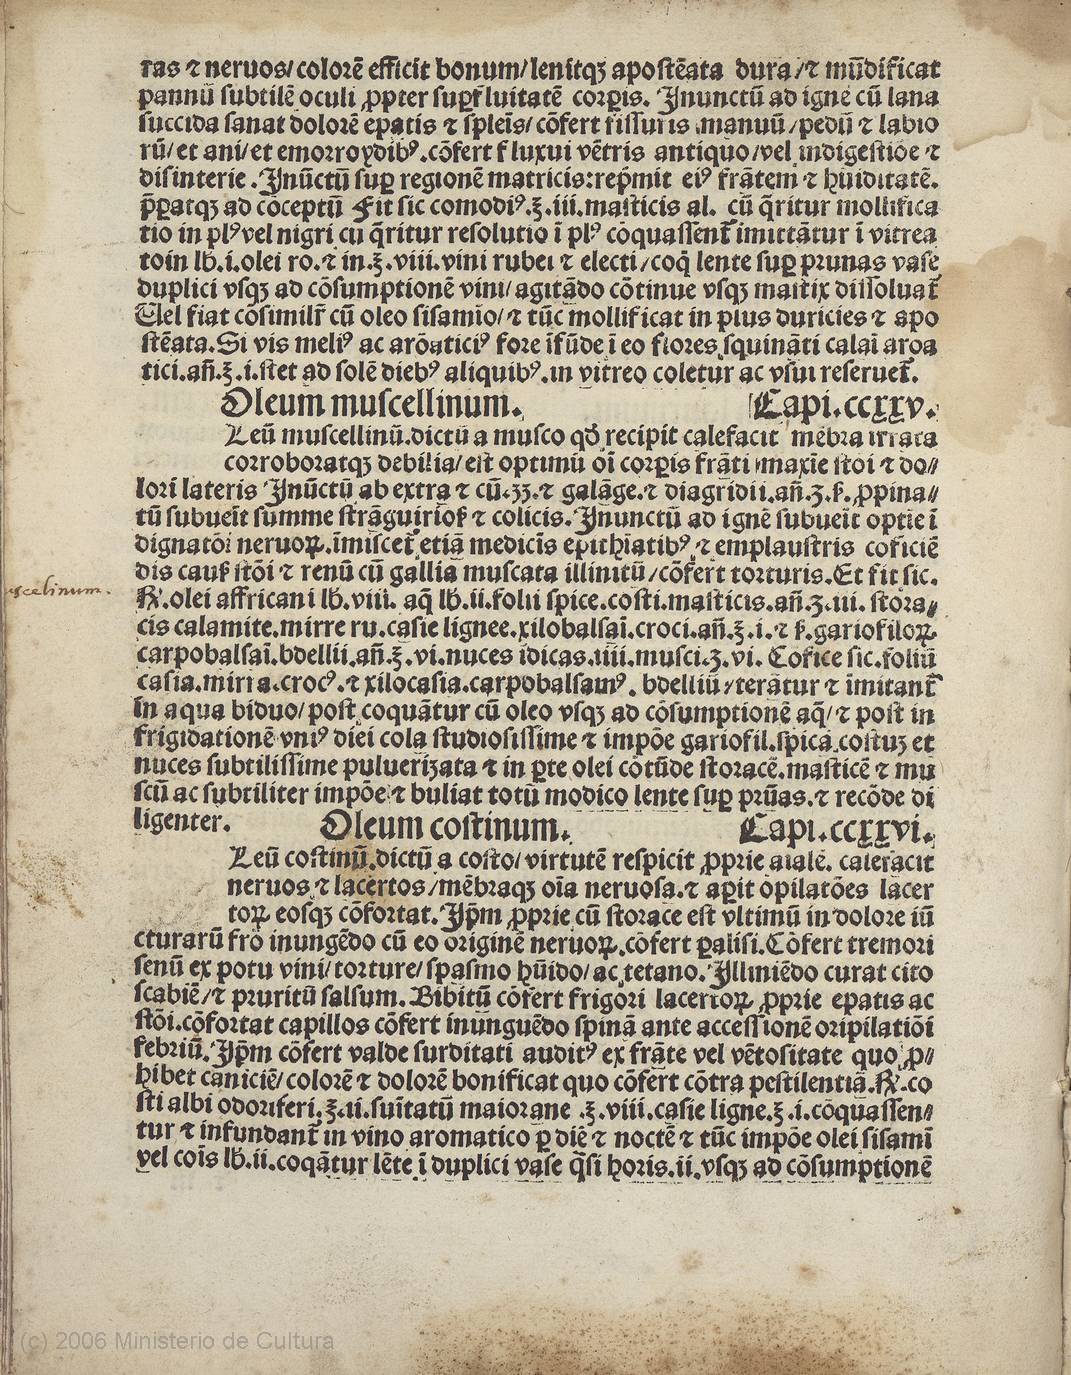 ras ⁊ neruos/colorē efficit bonum/lenitqꝫ apostēata dura/⁊ mūdificat
pannū subtilē oculi ꝓpter suꝑfluitatē corꝑis. Inunctū ad ignē cū lana
succida sanat dolorē epatis ⁊ spleīs/cōfert fissuris manuū/pedū ⁊ labio
rū/et ani/et emorroydibꝰ.cōfert fluxui vētris antiquo/vel indigestiōe ⁊
disinterie.Inūctū suꝑ regionē matricis:rep̄mit eiꝰ frātem ⁊ hūiditatē.
p̄ꝑatqꝫ ad cōceptū Fit sic comodiꝰ.℥.iii.masticis al. cū q̄ritur mollifica
tio in plꝰ vel nigri cū q̄ritur resolutio ī plꝰ cōquassent̄ imittātur ī vitrea
toin lb̄.i.olei ro.⁊ in.℥.viii.vini rubei ⁊ electi/coq̄ lente suꝑ prunas vase
duplici vsqꝫ ad cōsumptionē vini/agitādo cōtinue vsqꝫ mastix dissoluat̄
Uel fiat cōsimilr̄ cū oleo sisamio/⁊ tūc mollificat in plus duricies ⁊ apo
stēata.Si vis meliꝰ ac arōaticiꝰ fore īfūde ī eo flores squināti calaī aroa
tici.añ.℥.i.stet ad solē diebꝰ aliquibꝰ.in vitreo coletur ac vsui reseruet̄.
Oleum muscellinum. Capi.ccxxv.
Leū muscellinū.dictū a musco qd̄ recipit calefacit mēbra irrata
corroboratqꝫ debilia/est optimū oī corꝑis frāti maxīe stoi ⁊ do//
lori lateris Inūctū ab extra ⁊ cū.ʒʒ.⁊ galāge.⁊ diagridii.añ.ʒ.ꝭ.ꝓpina//
tū subueīt summe strāguiriosꝭ ⁊ colicis.Inunctū ad ignē subueīt optīe ī
dignatōi neruoꝝ.īmiscet̄ etiā medicīs epithīatibꝰ ⁊ emplaustris coficiē
dis causꝭ stōi ⁊ renū cū gallia muscata illinitū/cōfert torturis.Et fit sic.
℞.olei affricani lb̄.viii. aq̄ lb̄.ii.folii spice.costi.masticis.añ.ʒ.iii. stora//
cis calamite.mirre ru.casie lignee.xilobalsaī.croci.añ.℥.i.⁊ ꝭ.gariofiloꝝ.
carpobalsaī.bdellii.añ.℥.vi.nuces īdicas.iiii.musci.ʒ.vi. Cofice sic.foliū
casia.mirra.crocꝰ.⁊ xilocasia.carpobalsamꝰ. bdelliū/terātur ⁊ īmitant̄
in aqua biduo/post coquātur cū oleo vsqꝫ ad cōsumptionē aq̄/⁊ post in
frigidationē vniꝰ diei cola studiosissime ⁊ impōe gariofil.spica.costuꝫ et
nuces subtilissime pulueriȥata ⁊ in ꝑte olei cōtūde storacē.masticē ⁊ mu
scū ac subtiliter impōe ⁊ buliat totū modico lente suꝑ prūas.⁊ recōde di
ligenter. Oleum costinum. Capi.ccxxvi.
Leū costinū.dictū a costo/virtutē respicit ꝓprie aialē. calefacit
neruos ⁊ lacertos/mēbraqꝫ oīa neruosa.⁊ aꝑit opilatōes lacer
toꝝ eosqꝫ cōfortat.Ip̄m ꝓprie cū storace est vltimū in dolore iū
cturarū frō inungēdo cū eo originē neruoꝝ.cōfert ꝑalisi.Cōfert tremori
senū ex potu vini/torture/spasmo hūido/ac tetano.Illiniēdo curat cito
scabiē/⁊ pruritū salsum.Bibitū cōfert frigori lacertoꝝ ꝓprie epatis ac
stōi.cōfortat capillos cōfert inunguēdo spinā ante accessionē oripilatiōi
febriū.Ip̄m cōfert valde surditati auditꝰ ex frāte vel vētositate quo ꝓ//
hibet caniciē/colorē ⁊ dolorē bonificat quo cōfert cōtra pestilentiā.℞.co
sti albi odoriferi.℥.ii.suītatū maiorane .℥.viii.casie ligne.℥.i.cōquassen//
tur ⁊ infundant̄ in vino aromatico ꝑ diē ⁊ noctē ⁊ tūc impōe olei sisamī
vel coīs lb̄.ii.coqātur lēte ī duplici vase q̄si horis.ii.vsqꝫ ad cōsumptionē
scelinum.
(c) 2006 Ministerio de Cultura